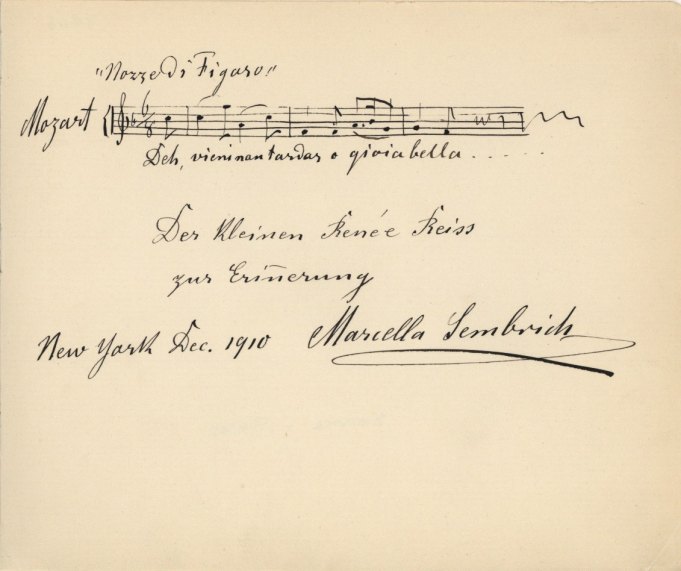 "Nozze di Figaro"
Mozart
6/8
Deh, vieni non tardar o gioia bella . . . . . .
Der kleinen Renée Reiss
zur Erin̄erung
New York Dec. 1910 Marcella Sembrich